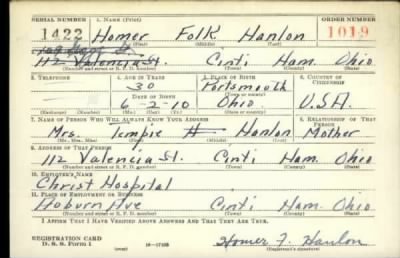 SERIAL NUMBER 1. NAME (Print) ORDER NUMBER
1422 Homer Folk Hanlon 1019
(First) (Middle) (Last)
112 Valencia St. Cinti Ham. Ohio
(Number and street or R. F. D. number) (Town) (County) (State)
3. TELEPHONE 4. AGE IN YEARS 5. PLACE OF BIRTH 6. COUNTRY OF CITIZENSHIP
30 Portsmouth
DATE OF BIRTH (Town or county)
6-2-10 Ohio U.S.A.
(Exchange) (Number) (Mo.) (Day) (Yr.) (State or country)
7. NAME OF PERSON WHO WILL ALWAYS KNOW YOUR ADDRESS 8. RELATIONSHIP OF THAT PERSON
Mrs. Tempie H Hanlon Mother
(Mr., Mrs., Miss) (First) (Middle) (Last)
9. ADDRESS OF THAT PERSON
112 Valencia St. Cinti Ham. Ohio
(Number and street or R. F. D. number) (Town) (County) (State)
10. EMPLOYER'S NAME
Christ Hospital
11. PLACE OF EMPLOYMENT OR BUSINESS
Auburn Ave Cinti Ham. Ohio
(Number and street or R. F. D. number) (Town) (County) (State)
I AFFIRM THAT I HAVE VERIFIED ABOVE ANSWERS AND THAT THEY ARE TRUE.
REGISTRATION CARD
D. S. S. Form 1 (over) 16—17105 Homer F. Hanlon
(Registrant's signature)